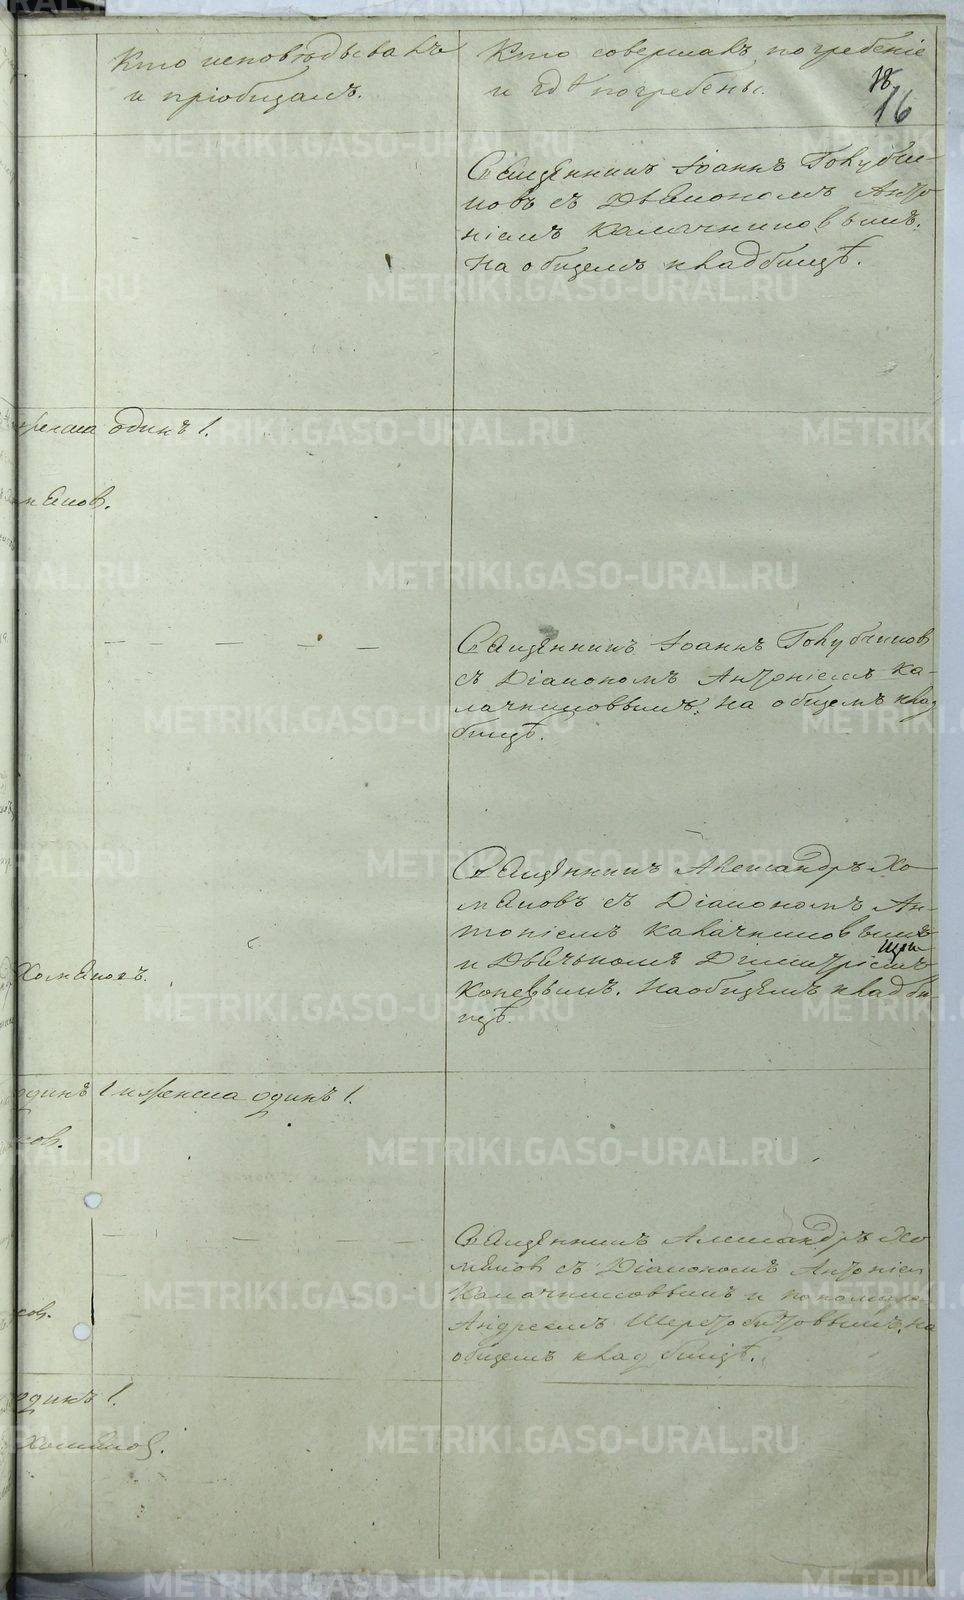 Кто исповѣдывалъ
и пріобщалъ.
Кто совершалъ погребеніе
и гдѣ погребены.
18.
16
Священникъ Іоаннъ Голубчи-
ковъ съ Діакономъ Анто
ніемъ Калачниковымъ.
На общемъ кладбищѣ.
одинъ 1.
Священникъ Іоаннъ Голубчиковъ
съ Діакономъ Антоніемъ Ка-
лачниковымъ, на общемъ клад
бищѣ.
Священникъ Александръ Хо
мяковъ съ Діакономъ Ан-
тоніемъ Калачниковымъ
и Дьячкомъ Димитріемъ
Коневымъ. На общемъ кладби-
щѣ.
Хомяковъ.
одинъ 1 и женска одинъ 1.
ковъ.
Священникъ Александръ Хо
мяковъ съ Діакономъ Антоніем
Калачниковымъ и пономаре
Андреемъ на
общемъ кладбищѣ.
ковъ.
одинъ 1.
Хомяковъ.
METRIKI.GASO-URAL.RU